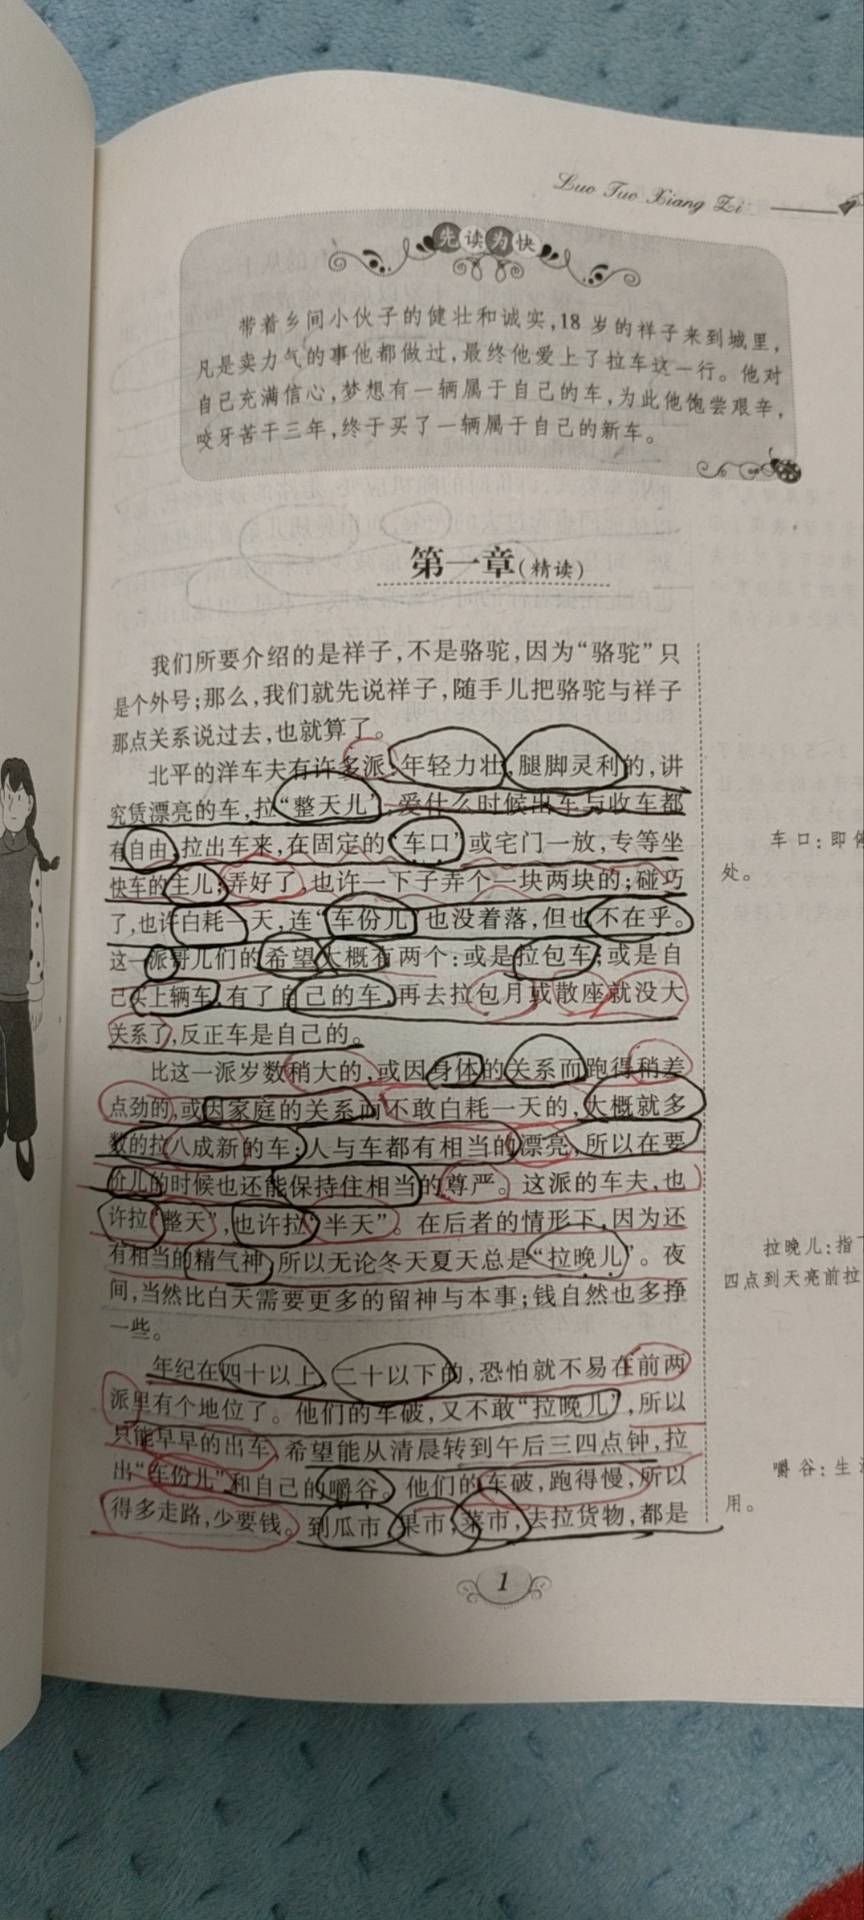 Luo Tuo Xiang Zi
先读为快
带着乡间小伙子的健壮和诚实,18岁的祥子来到城里,
凡是卖力气的事他都做过,最终他爱上了拉车这一行。他对
自己充满信心,梦想有一辆属于自己的车,为此他饱尝艰辛,
咬牙苦干三年,终于买了一辆属于自己的新车。
第一章(精读)
我们所要介绍的是祥子,不是骆驼,因为“骆驼”只
是个外号;那么,我们就先说祥子,随手儿把骆驼与祥子
那点关系说过去,也就算了。
北平的洋车夫有许多派:年轻力壮,腿脚灵利的,讲
究赁漂亮的车,拉“整天儿”,爱什么时候出车与收车都
有自由;拉出车来,在固定的“车口”或宅门一放,专等坐
快车的主儿;弄好了,也许一下子弄个一块两块的;碰巧
了,也许白耗一天,连“车份儿”也没着落,但也不在乎。
这一派哥儿们的希望大概有两个:或是拉包车;或是自
己买上辆车,有了自己的车,再去拉包月或散座就没大
关系了,反正车是自己的。
比这一派岁数稍大的,或因身体的关系而跑得稍差
点劲的,或因家庭的关系而不敢白耗一天的,大概就多
数的拉八成新的车;人与车都有相当的漂亮,所以在要
价儿的时候也还能保持住相当的尊严。这派的车夫,也
许拉“整天”,也许拉“半天”。在后者的情形下,因为还
有相当的精气神,所以无论冬天夏天总是“拉晚儿”。夜
间,当然比白天需要更多的留神与本事;钱自然也多挣
一些。
年纪在四十以上,二十以下的,恐怕就不易在前两
派里有个地位了。他们的车破,又不敢“拉晚儿”,所以
只能早早的出车,希望能从清晨转到午后三四点钟,拉
出“车份儿”和自己的嚼谷。他们的车破,跑得慢,所以
得多走路,少要钱。到瓜市,果市,菜市,去拉货物,都是
车口:即
处。
拉晚儿:指
四点到天亮前拉
嚼谷:生
用。
1